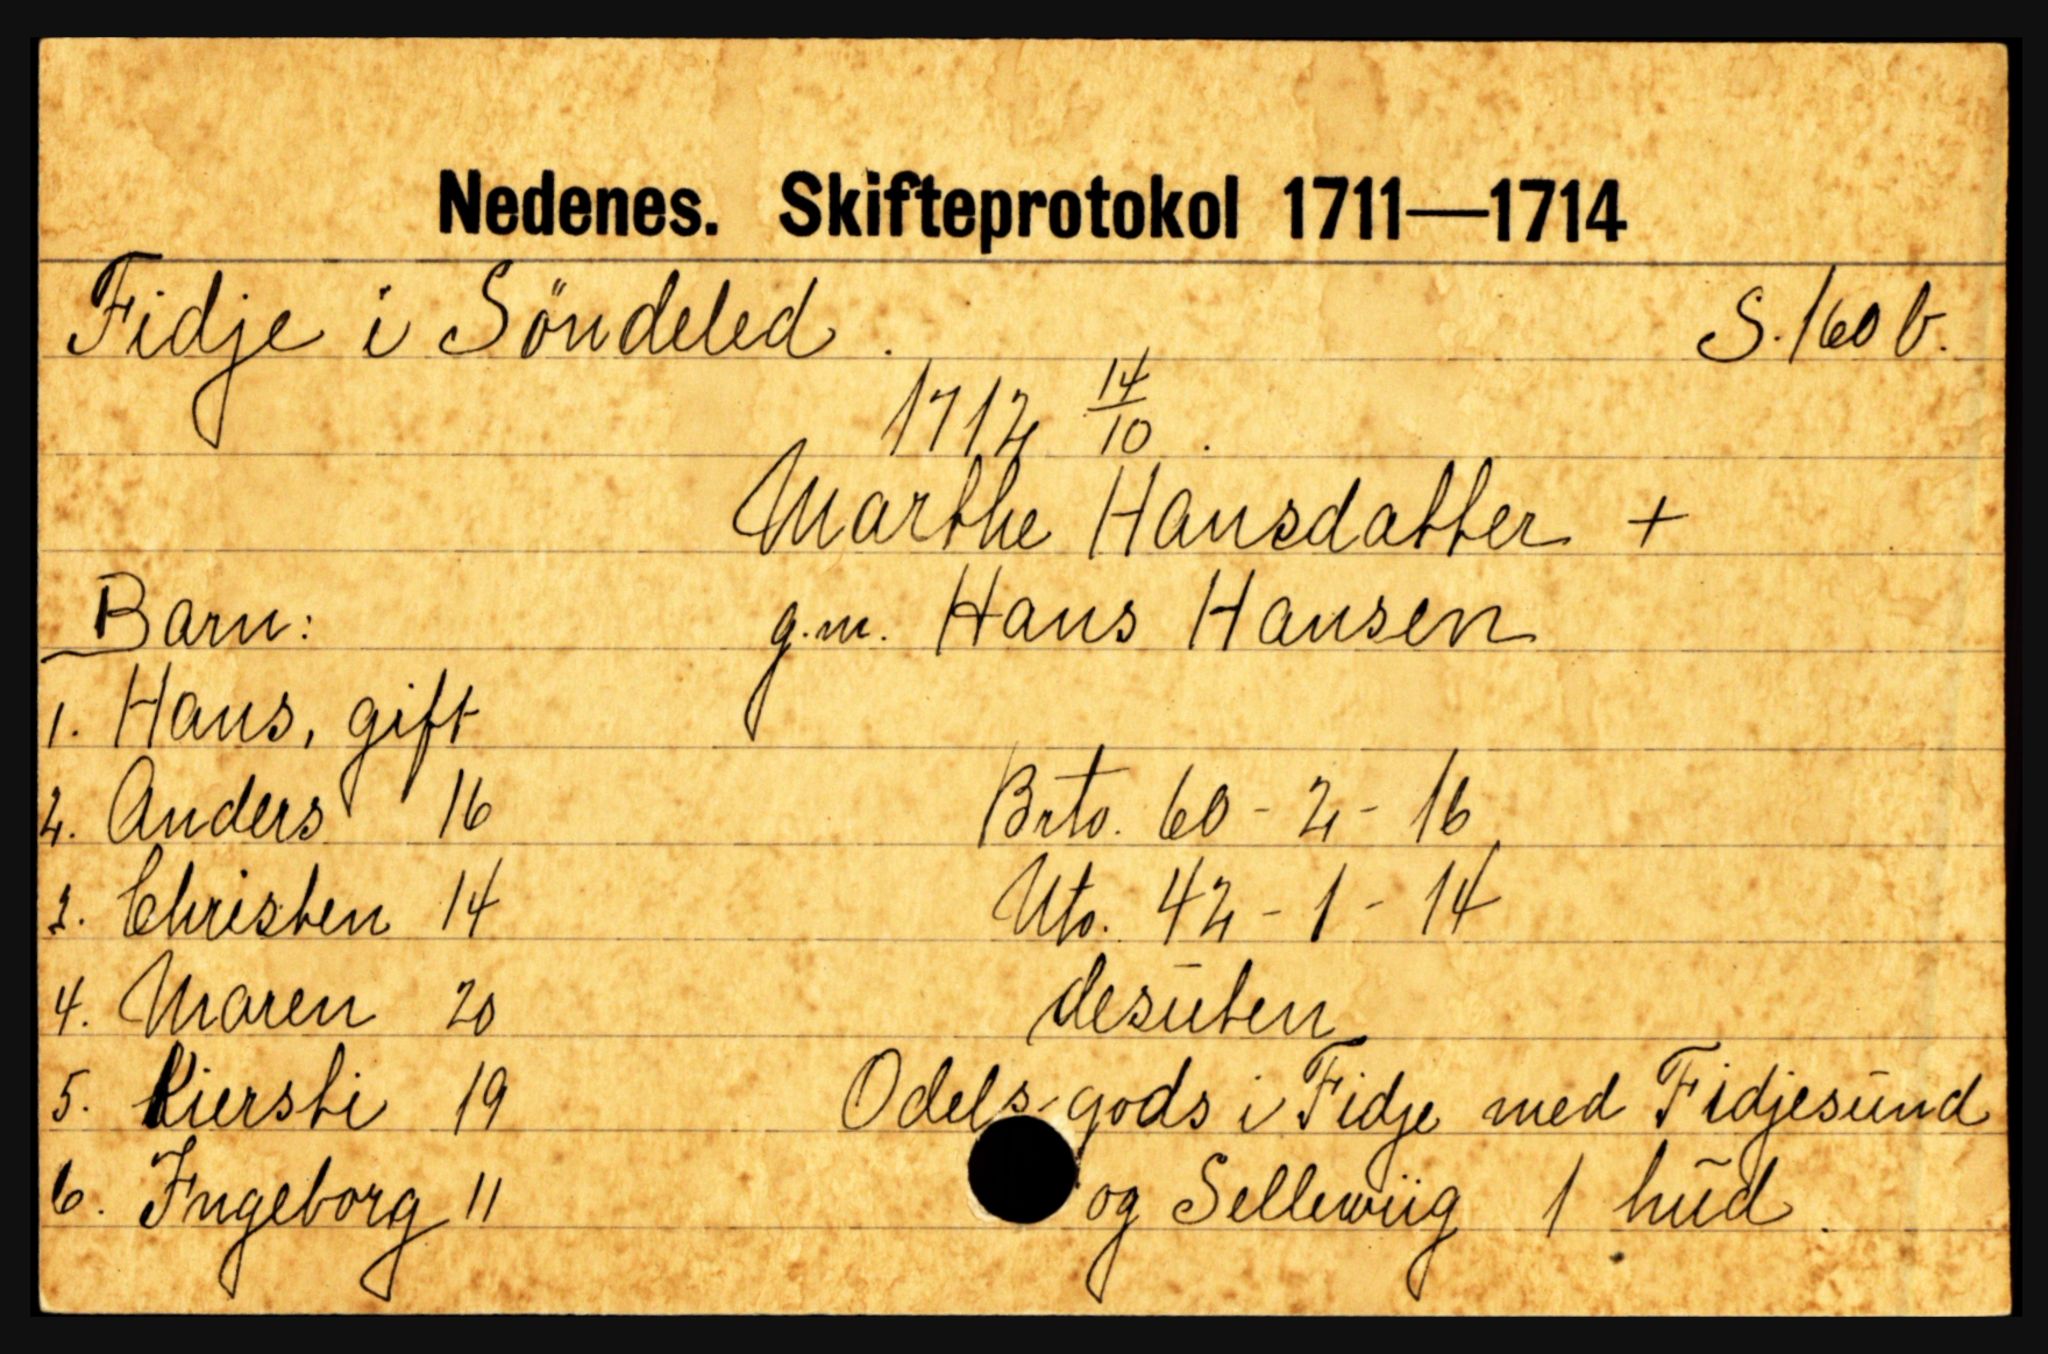 Nedenes. Skifteprotokol 1711—1714
Fidje i Söndeled. S. 160 b.
1712 14/10.
Marthe Hansdatter +
Barn: g.m. Hans Hansen
1. Hans, gift
2. Anders 16 Brto. 60 - 2 - 16
3. Christen 14 Nto. 42 - 1 - 14
4. Maren 20 desūten
5. Kiersti 19 Odels-gods i Fidje med Fidjesūnd
6. Ingeborg 11 og Sellewiig 1 hūd.